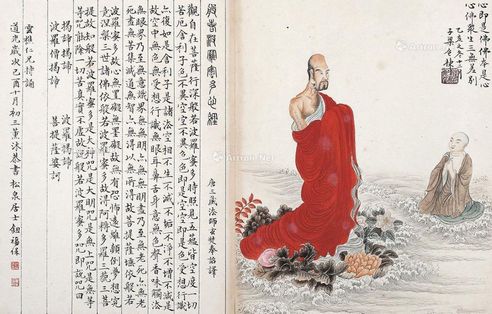 心即是佛佛本是心
心佛眾生三無差別
般若波羅蜜多心經
唐三藏法師玄奘奉詔譯
觀自在菩薩行深般若波羅蜜多時照見五蘊皆空度一切
苦厄舍利子色不異空空不異色色即是空空即是色受想行識
亦復如是舍利子是諸法空相不生不滅不垢不淨不增不減是
故空中無色無受想行識無眼耳鼻舌身意無色聲香味觸法
無眼界乃至無意識界無無明亦無無明盡乃至無老死亦無老
死盡無苦集滅道無智亦無得以無所得故菩提薩埵依般若
波羅蜜多故心無罣礙無罣礙故無有恐怖遠離顛倒夢想究
竟涅槃三世諸佛依般若波羅蜜多故得阿耨多羅三藐三菩
提故知般若波羅蜜多是大神咒是大明咒是無上咒是無等
等咒能除一切苦真實不虛故說般若波羅蜜多咒即說咒曰
揭諦揭諦 波羅揭諦
波羅僧揭諦 菩提薩婆訶
雲樵仁兄持誦
道光歲次己酉十月初三薰沐恭書 松泉居士鈕福保